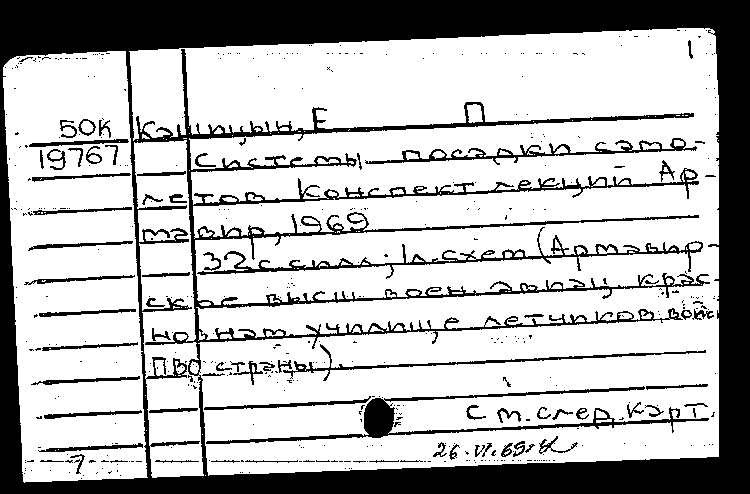 1
50К Кашицын, Е П
19767 Системы посадки само-
летов. Конспект лекций Ар-
мавир, 1969
32 с с илл; 1 л. схем (Армавир-
ское высш. воен. авиац. крас-
нознам. училище летчиков войск
ПВО страны).
См. след. карт.
7 26.VI.69.